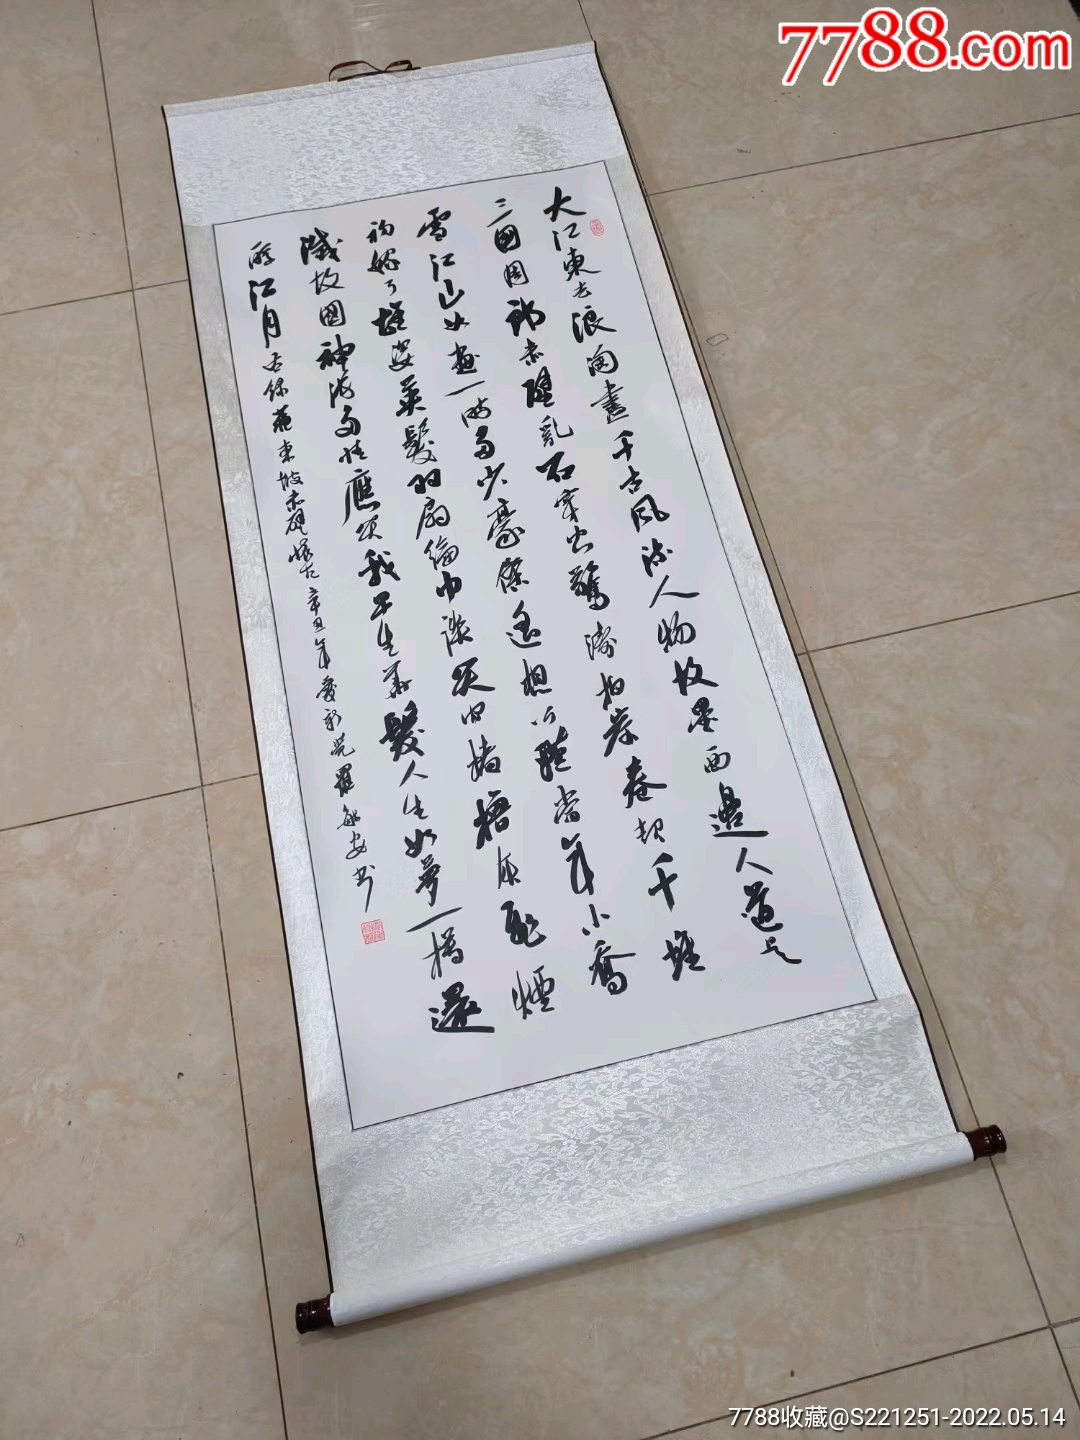 7788.com
大江東去浪淘盡千古風流人物故壘西邊人道是
三國周郎赤壁亂石穿空驚濤拍岸卷起千堆
雪江山如畫一時多少豪傑遙想公瑾當年小喬
初嫁了雄姿英髮羽扇綸巾談笑間檣櫓灰飛煙
滅故國神遊多情應笑我早生華髮人生如夢一樽還
酹江月右錄蘇東坡赤壁懷古辛丑年夏莞羅敏安书
7788收藏@S221251-2022.05.14